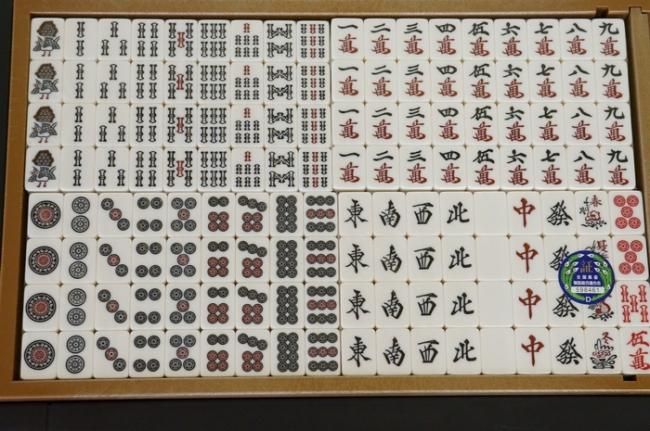 一 二 三 四 伍 六 七 八 九
萬 萬 萬 萬 萬 萬 萬 萬 萬
一 二 三 四 伍 六 七 八 九
萬 萬 萬 萬 萬 萬 萬 萬 萬
一 二 三 四 伍 六 七 八 九
萬 萬 萬 萬 萬 萬 萬 萬 萬
一 二 三 四 伍 六 七 八 九
萬 萬 萬 萬 萬 萬 萬 萬 萬
東 南 西 北 中 發 春
東 南 西 北 中 發
598461
D
東 南 西 北 中 發
東 南 西 北 中 發 冬 伍
萬